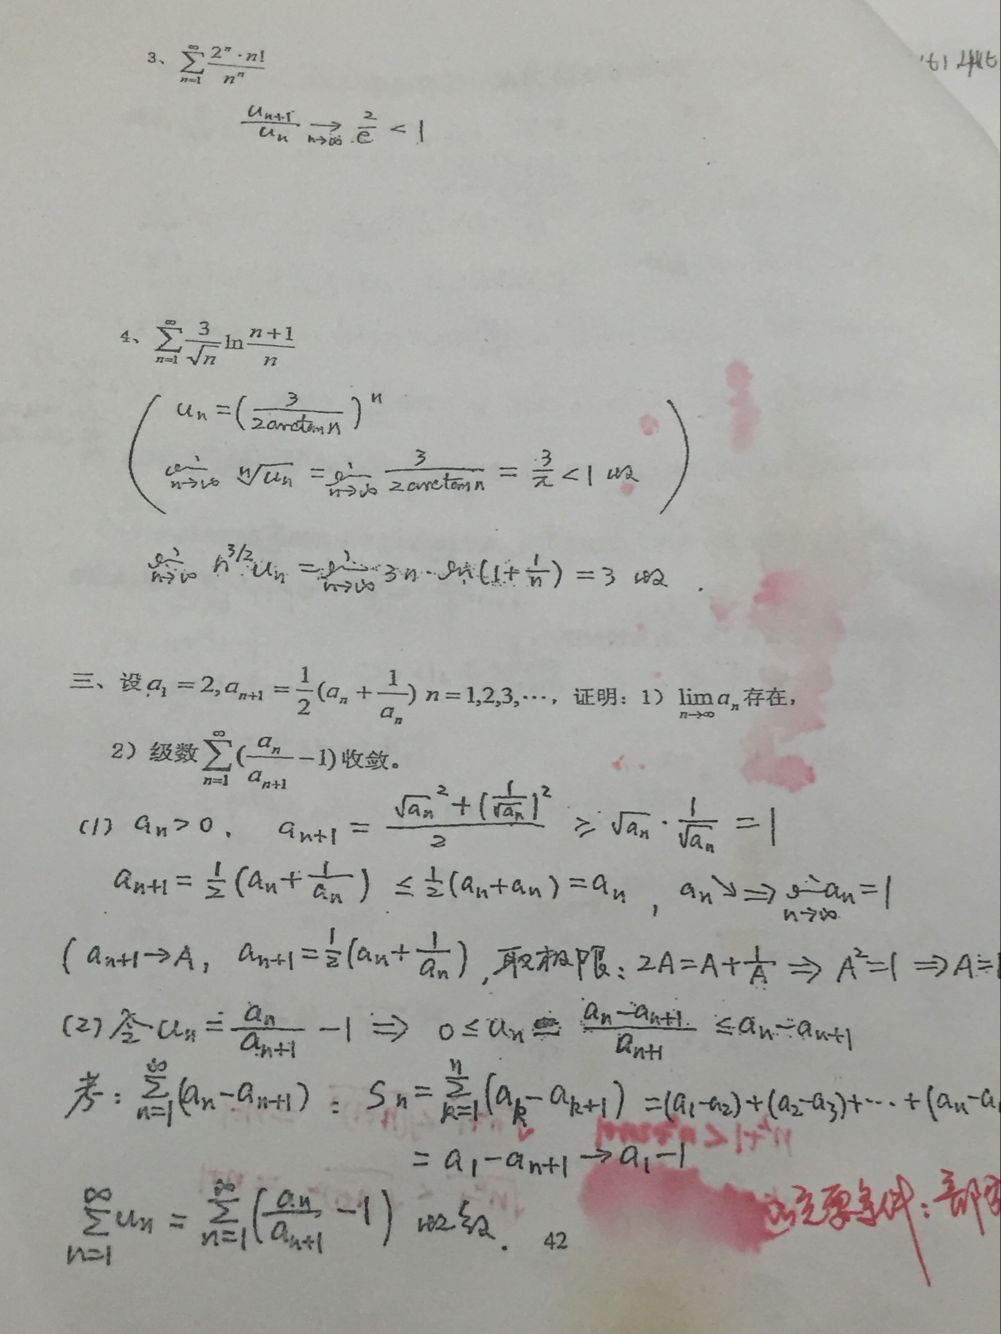 3、 $\sum_{n=1}^{\infty}\frac{2^n \cdot n!}{n^n}$
$\frac{u_{n+1}}{u_n} \xrightarrow[n\to\infty]{} \frac{2}{e} < 1$
4、 $\sum_{n=1}^{\infty}\frac{3}{\sqrt{n}}\ln\frac{n+1}{n}$
$u_n = \left(\frac{3}{2\arctan n}\right)^n$
$\lim_{n\to\infty} \sqrt[n]{u_n} = \lim_{n\to\infty} \frac{3}{2\arctan n} = \frac{3}{\pi} < 1$ 收
$\lim_{n\to\infty} n^{3/2} u_n = \lim_{n\to\infty} 3n \cdot \ln(1+\frac{1}{n}) = 3$ 收.
三、设 $a_1 = 2, a_{n+1} = \frac{1}{2}(a_n + \frac{1}{a_n})$ $n = 1,2,3,\cdots$, 证明: 1) $\lim_{n\to\infty} a_n$ 存在,
2) 级数 $\sum_{n=1}^{\infty}(\frac{a_n}{a_{n+1}} - 1)$ 收敛。
(1) $a_n > 0$. $a_{n+1} = \frac{\sqrt{a_n}^2 + (\frac{1}{\sqrt{a_n}})^2}{2} \geq \sqrt{a_n} \cdot \frac{1}{\sqrt{a_n}} = 1$
$a_{n+1} = \frac{1}{2}(a_n + \frac{1}{a_n}) \leq \frac{1}{2}(a_n + a_n) = a_n$, $a_n \searrow \Rightarrow \lim_{n\to\infty} a_n = 1$
($a_{n+1} \to A$, $a_{n+1} = \frac{1}{2}(a_n + \frac{1}{a_n})$, 取极限: $2A = A + \frac{1}{A} \Rightarrow A^2 = 1 \Rightarrow A = 1$
(2) 令 $u_n = \frac{a_n}{a_{n+1}} - 1 \Rightarrow 0 \leq u_n = \frac{a_n - a_{n+1}}{a_{n+1}} \leq a_n - a_{n+1}$
考: $\sum_{n=1}^{\infty}(a_n - a_{n+1})$: $S_n = \sum_{k=1}^{n}(a_k - a_{k+1}) = (a_1 - a_2) + (a_2 - a_3) + \cdots + (a_n - a$
$= a_1 - a_{n+1} \to a_1 - 1$
$\sum_{n=1}^{\infty} u_n = \sum_{n=1}^{\infty}\left(\frac{a_n}{a_{n+1}} - 1\right)$ 收敛.
要条件: 部
42